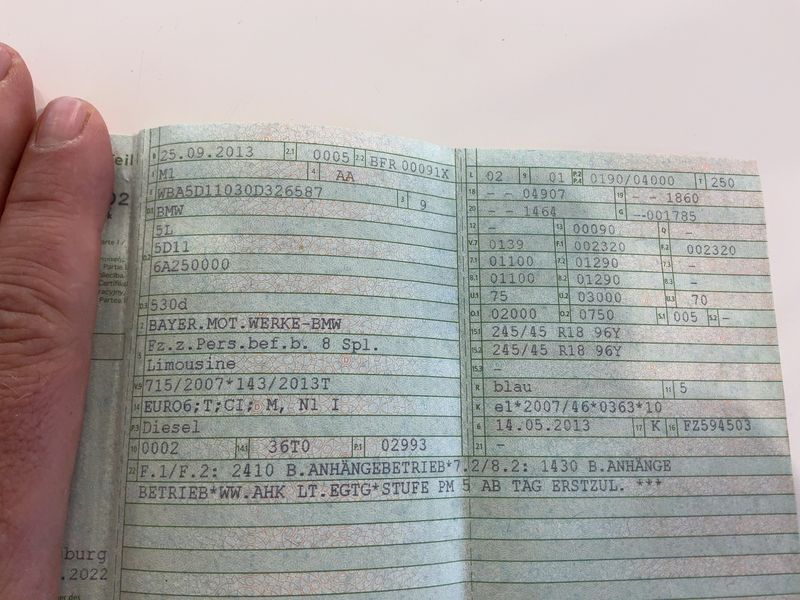 Teil
B 25.09.2013 2.1 0005 2.2 BFR00091X
J M1 4 AA
E WBA5D11030D326587 3 9
D.1 BMW
5L
D.2 5D11
6A250000
D.3 530d
2 BAYER.MOT.WERKE-BMW
5 Fz.z.Pers.bef.b. 8 Spl.
Limousine
V.9 715/2007*143/2013T
14 EURO6;T;CI; M, N1 I
P.3 Diesel
10 0002 14.1 36T0 P.1 02993
22 F.1/F.2: 2410 B.ANHÄNGEBETRIEB*7.2/8.2: 1430 B.ANHÄNGE
BETRIEB*WW.AHK LT.EGTG*STUFE PM 5 AB TAG ERSTZUL. ***
L 02 9 1 01 P.2 P.4 0190/04000 T 250
18 - - 04907 19 - - 1860
20 - - 1464 G --001785
12 - 13 00090 Q -
V.7 0139 F.1 002320 F.2 002320
7.1 01100 7.2 01290 7.3 -
8.1 01100 8.2 01290 8.3 -
U.1 75 U.2 03000 U.3 70
O.1 02000 O.2 0750 S.1 005 S.2 -
15.1 245/45 R18 96Y
15.2 245/45 R18 96Y
15.3 -
R blau 11 5
K e1*2007/46*0363*10
6 14.05.2013 17 K 16 FZ594503
21 -
burg
.2022